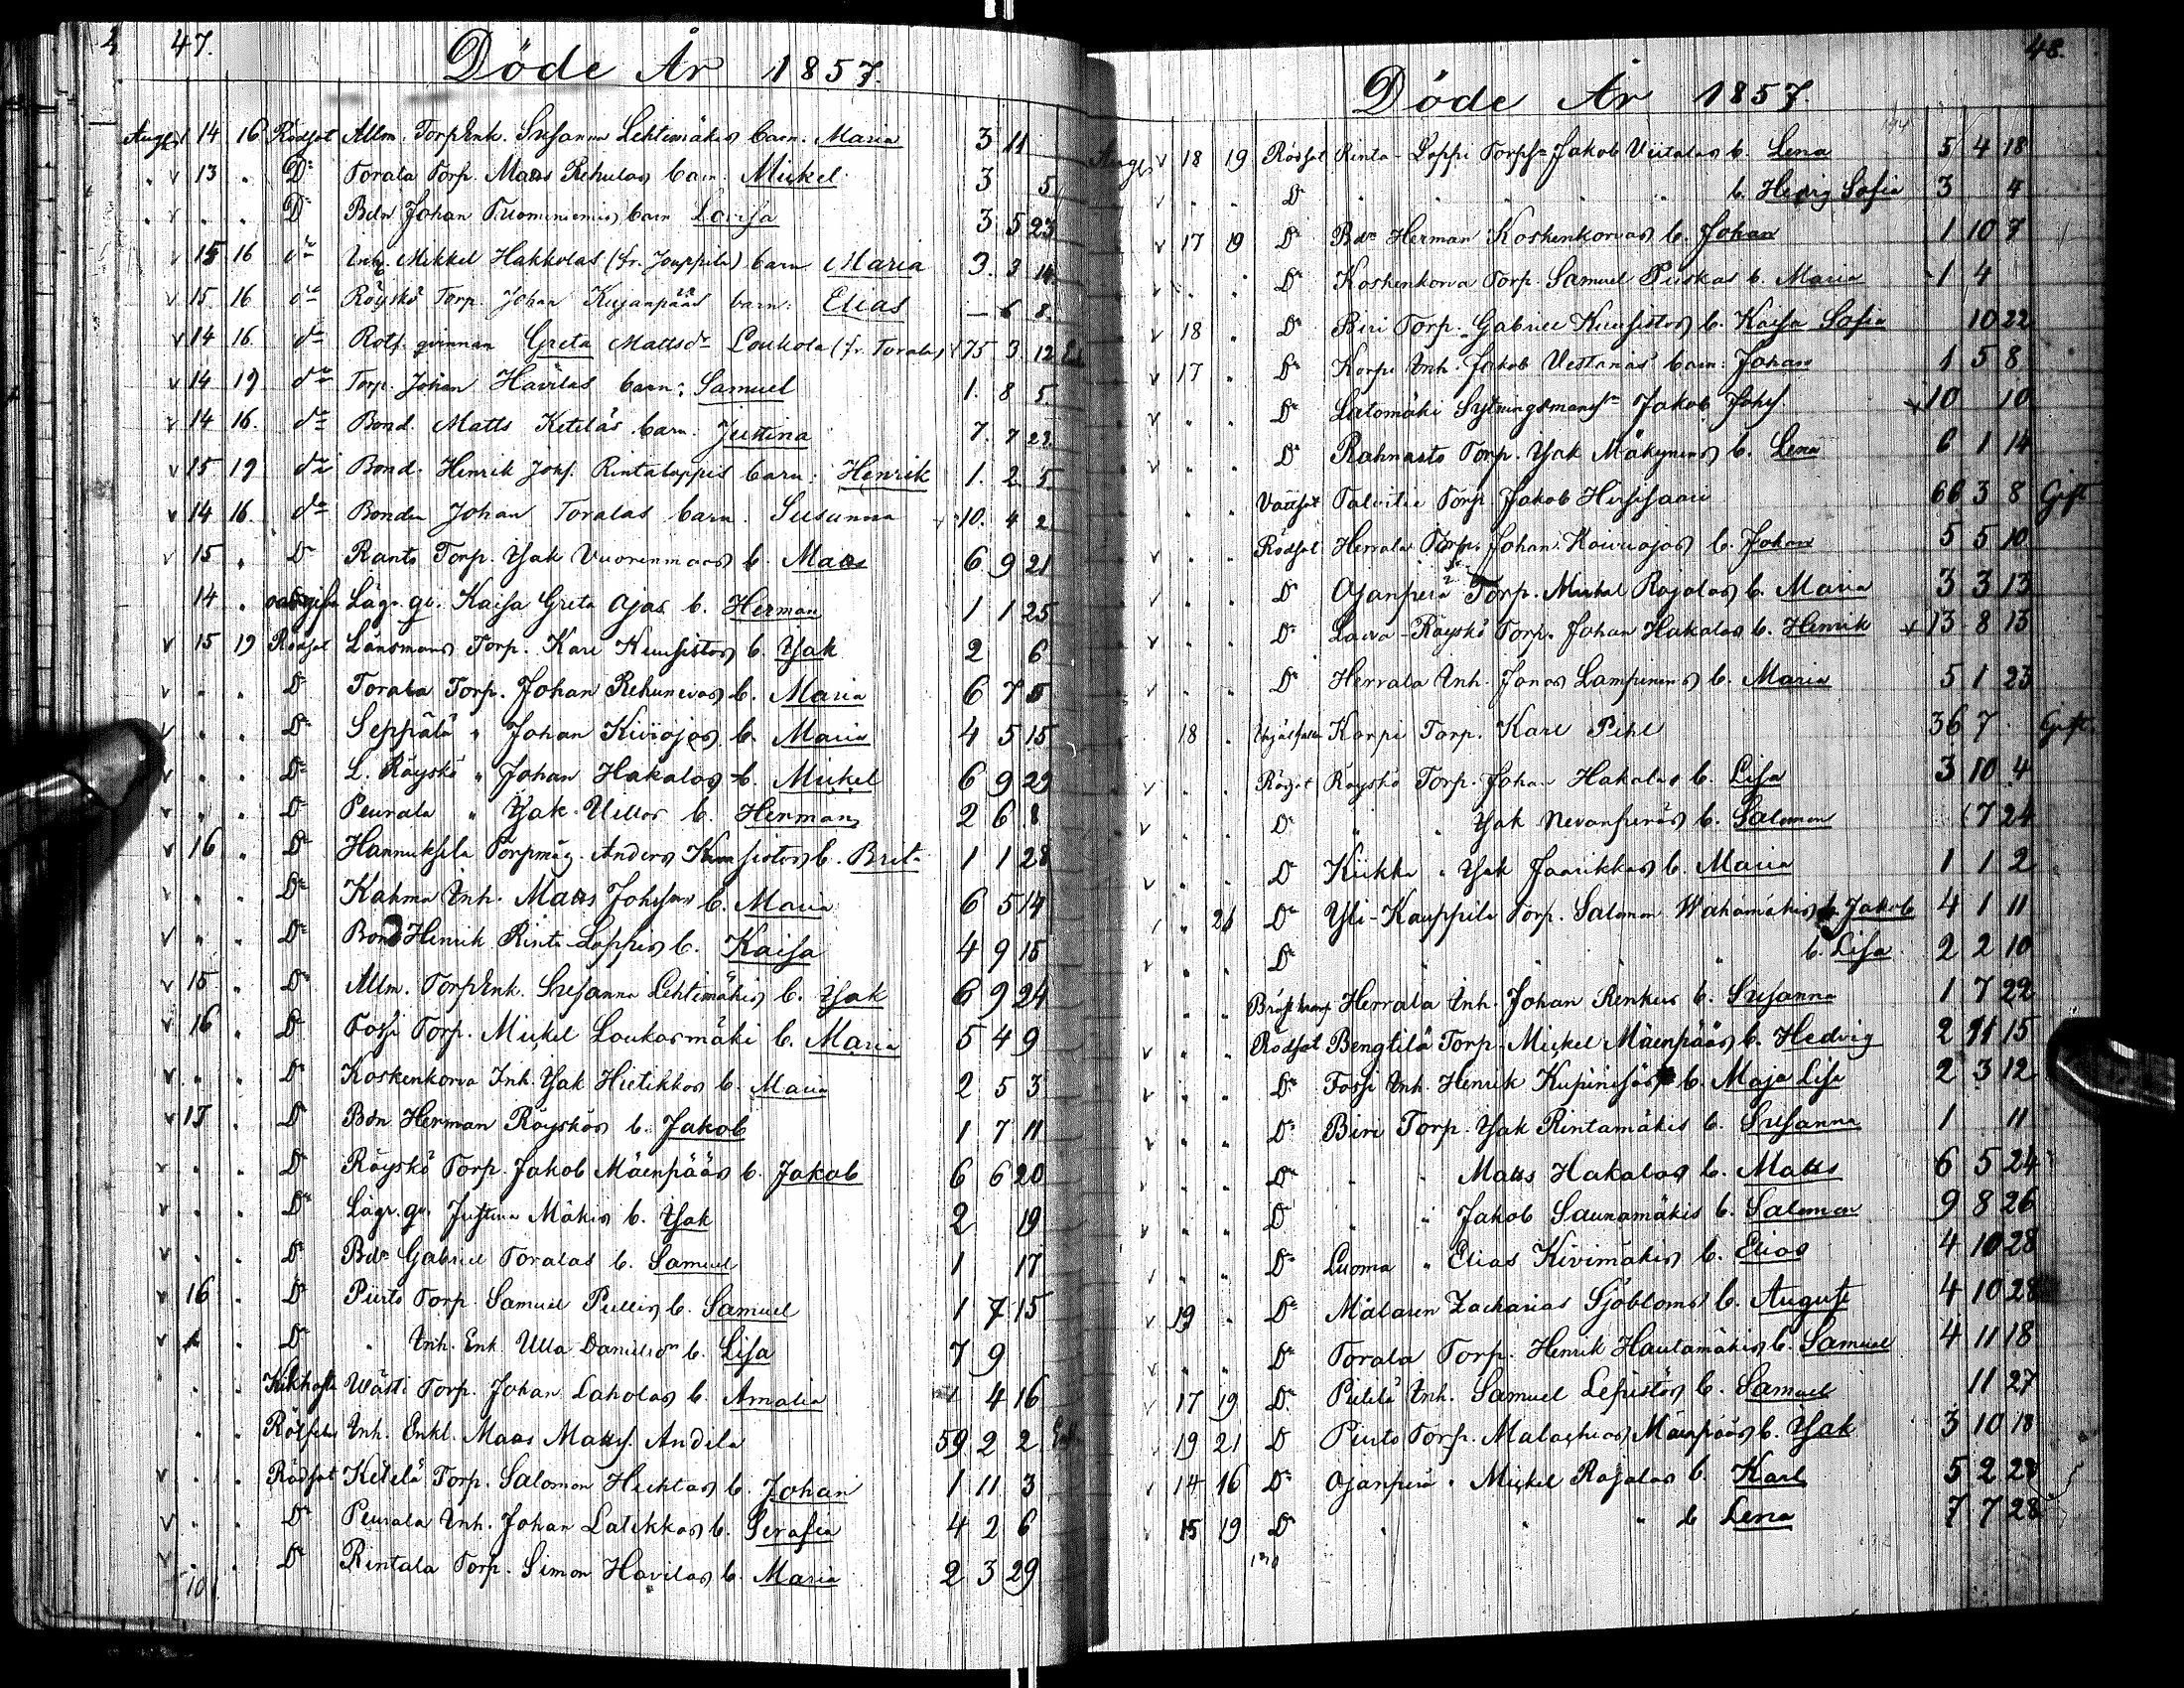 47.
Döde År 1857.
Aug. 14 16 Rödsot Allm. TorpEnk. Susanna Lehtimäkis barn. Maria 3 11
" 13 " Do Torala Torp. Matts Rehulas barn Mickel 3 5
" " " Do Bdn Johan Tuominiemis barn Lovisa 3 5 23
15 16 do Inh. Mikkel Hakkolas (fr. Jouppila) barn Maria 3. 3 14.
15. 16 do Röyskö Torp. Johan Kujanpääs barn: Elias — 6 8.
14 16. do Rotf. qvinnan Greta Mattsdr Loukola (fr. Torala) 75 3. 12
14 19 do Torp. Johan Havilas barn: Samuel 1. 8 5.
14 16. do Bond. Matts Ketiläs barn: Justina 7. 7 23.
15 19 do Bond. Henrik Johs. Rintaloppis barn: Henrik 1. 2 5.
14 16. do Bonden Johan Toralas barn. Susanna 10. 4 2
15 " Do Ranto Torp. Isak Vuorenmaas b. Matts 6 9 21
14 " Lägr. qv. Kaisa Greta Ajas b. Herman 1 1 25
15 19 Rödsot Länsmans Torp. Karl Kuusistos b. Isak 2 6
" " Do Torala Torp. Johan Rehunevas b. Maria 6 7 5
" " Do Seppälä " Johan Kiviojas b. Maria 4 5 15
" " Do L. Röyskö " Johan Hakalas b. Mickel 6 9 29
" " Do Peurala " Isak Ullas b. Herman 2 6 8
16 " Do Hannuksela Torpmåg. Anders Kuusistos b. Brita 1 1 28
" " Do Kahma Inh. Matts Johssons b. Maria 6 5 14
" " Do Bond Henrik Rinta-Loppis b. Kaisa 4 9 15
15 " Do Allm. TorpEnk. Susanna Lehtimäkis b. Isak 6 9 24
16 " Do Fossi Torp. Mickel Loukasmäki b. Maria 5 4 9
" " Do Koskenkorva Inh. Isak Hietikkos b. Maria 2 5 3
17 " Do Bdn Herman Röyskös b. Jakob 1 7 11
" " Do Röyskö Torp. Jakob Mäenpääs b. Jakob 6 6 20
" " Do Lägr. qv. Justina Mäkis b. Isak 2 19
" " Do Bdn Gabriel Toralas b. Samuel 1 17
16 " Do Piirto Torp. Samuel Pullis b. Samuel 1 7 15
" Do " Inh. Enk. Ulla Danielsdr b. Lisa 7 9
" " Kikhosta Wästi Torp. Johan Laholas b. Amalia 4 16
" " Inh. Enkl. Matts Matts. Andela 59 2 2
" " Rödsot Ketelä Torp. Salomon Huhtas b. Johan 1 11 3
" " Do Peurala Inh. Johan Latikkas b. Serafia 4 2 6
" Do Rintala Torp. Simon Havilas b. Maria 2 3 29
48.
Döde År 1857.
Aug. 18 19 Rödsot Rinta-Loppi Torps Jakob Viitalas b. Lena 5 4 18
" " Do " " " b. Hedvig Sofia 3 4
17 19 Do Bdn Herman Koskenkorvas b. Johan 1 10 7
" " Do Koskenkorva Torp. Samuel Puskas b. Maria 1 4
18 " Do Biri Torp. Gabriel Kuusistos b. Kaisa Sofia 10 22
17 " Do Korpi Inh. Jakob Vestanäs barn: Johan 1 5 8
" " Do Latomäki Sytningsman Jakob Johs 10 10
" " Do Rahnasto Torp. Isak Mäkynens b. Lena 6 1 14
" " Talvitie Torp. Jakob Hirsisaari 66 3 8 Gift
" " Rödsot Herrala Torp. Johan Koivuojas b. Johan 5 5 10
" " Do Ojanperä Torp. Mickel Rajalas b. Maria 3 3 13
" " Do Laura-Röyskö Torp. Johan Hakalas b. Henrik 13 8 13
" " Do Herrala Inh. Jonas Lampinens b. Maria 5 1 23
18 " Korpi Torp. Karl Pihl 36 7 Gift.
" " Rödsot Röyskö Torp. Johan Hakalas b. Lisa 3 10 4
" " Do " " Isak Nevanperäs b. Salomon 7 24
" " Do Kiikka " Isak Jaarikkas b. Maria 1 1 2
" 21 Do Yli-Kauppila Torp. Salomon Wähämäkis b. Jakob 4 1 11
" " Do " " " b. Lisa 2 2 10
" " Herrala Inh. Johan Renkus b. Susanna 1 7 22
" " Rödsot Bengtilä Torp. Mickel Mäenpääs b. Hedvig 2 11 15
" " Do Fossi Inh. Henrik b. Maja Lisa 2 3 12
" " Do Biri Torp. Isak Rintamäkis b. Susanna 1 11
" " Do " " Matts Hakalas b. Matts 6 5 24
" " Do " " Jakob Saunamäkis b. Salomon 9 8 26
" " Do Luoma " Elias Kivimäkis b. Elias 4 10 28
19 " Do Målaren Zacharias Sjöbloms b. August 4 10 28
" " Do Torala Torp. Henrik Hautamäkis b. Samuel 4 11 18
17 19 Do Pitilä Inh. Samuel Lepistös b. Samuel 11 27
19 21 Do Piirto Torp. Malachias Mäenpääs b. Isak 3 10 18
14 16 Do Ojanperä " Mickel Rajalas b. Karl 5 2 28
15 19 Do " " " b Lena 7 7 28